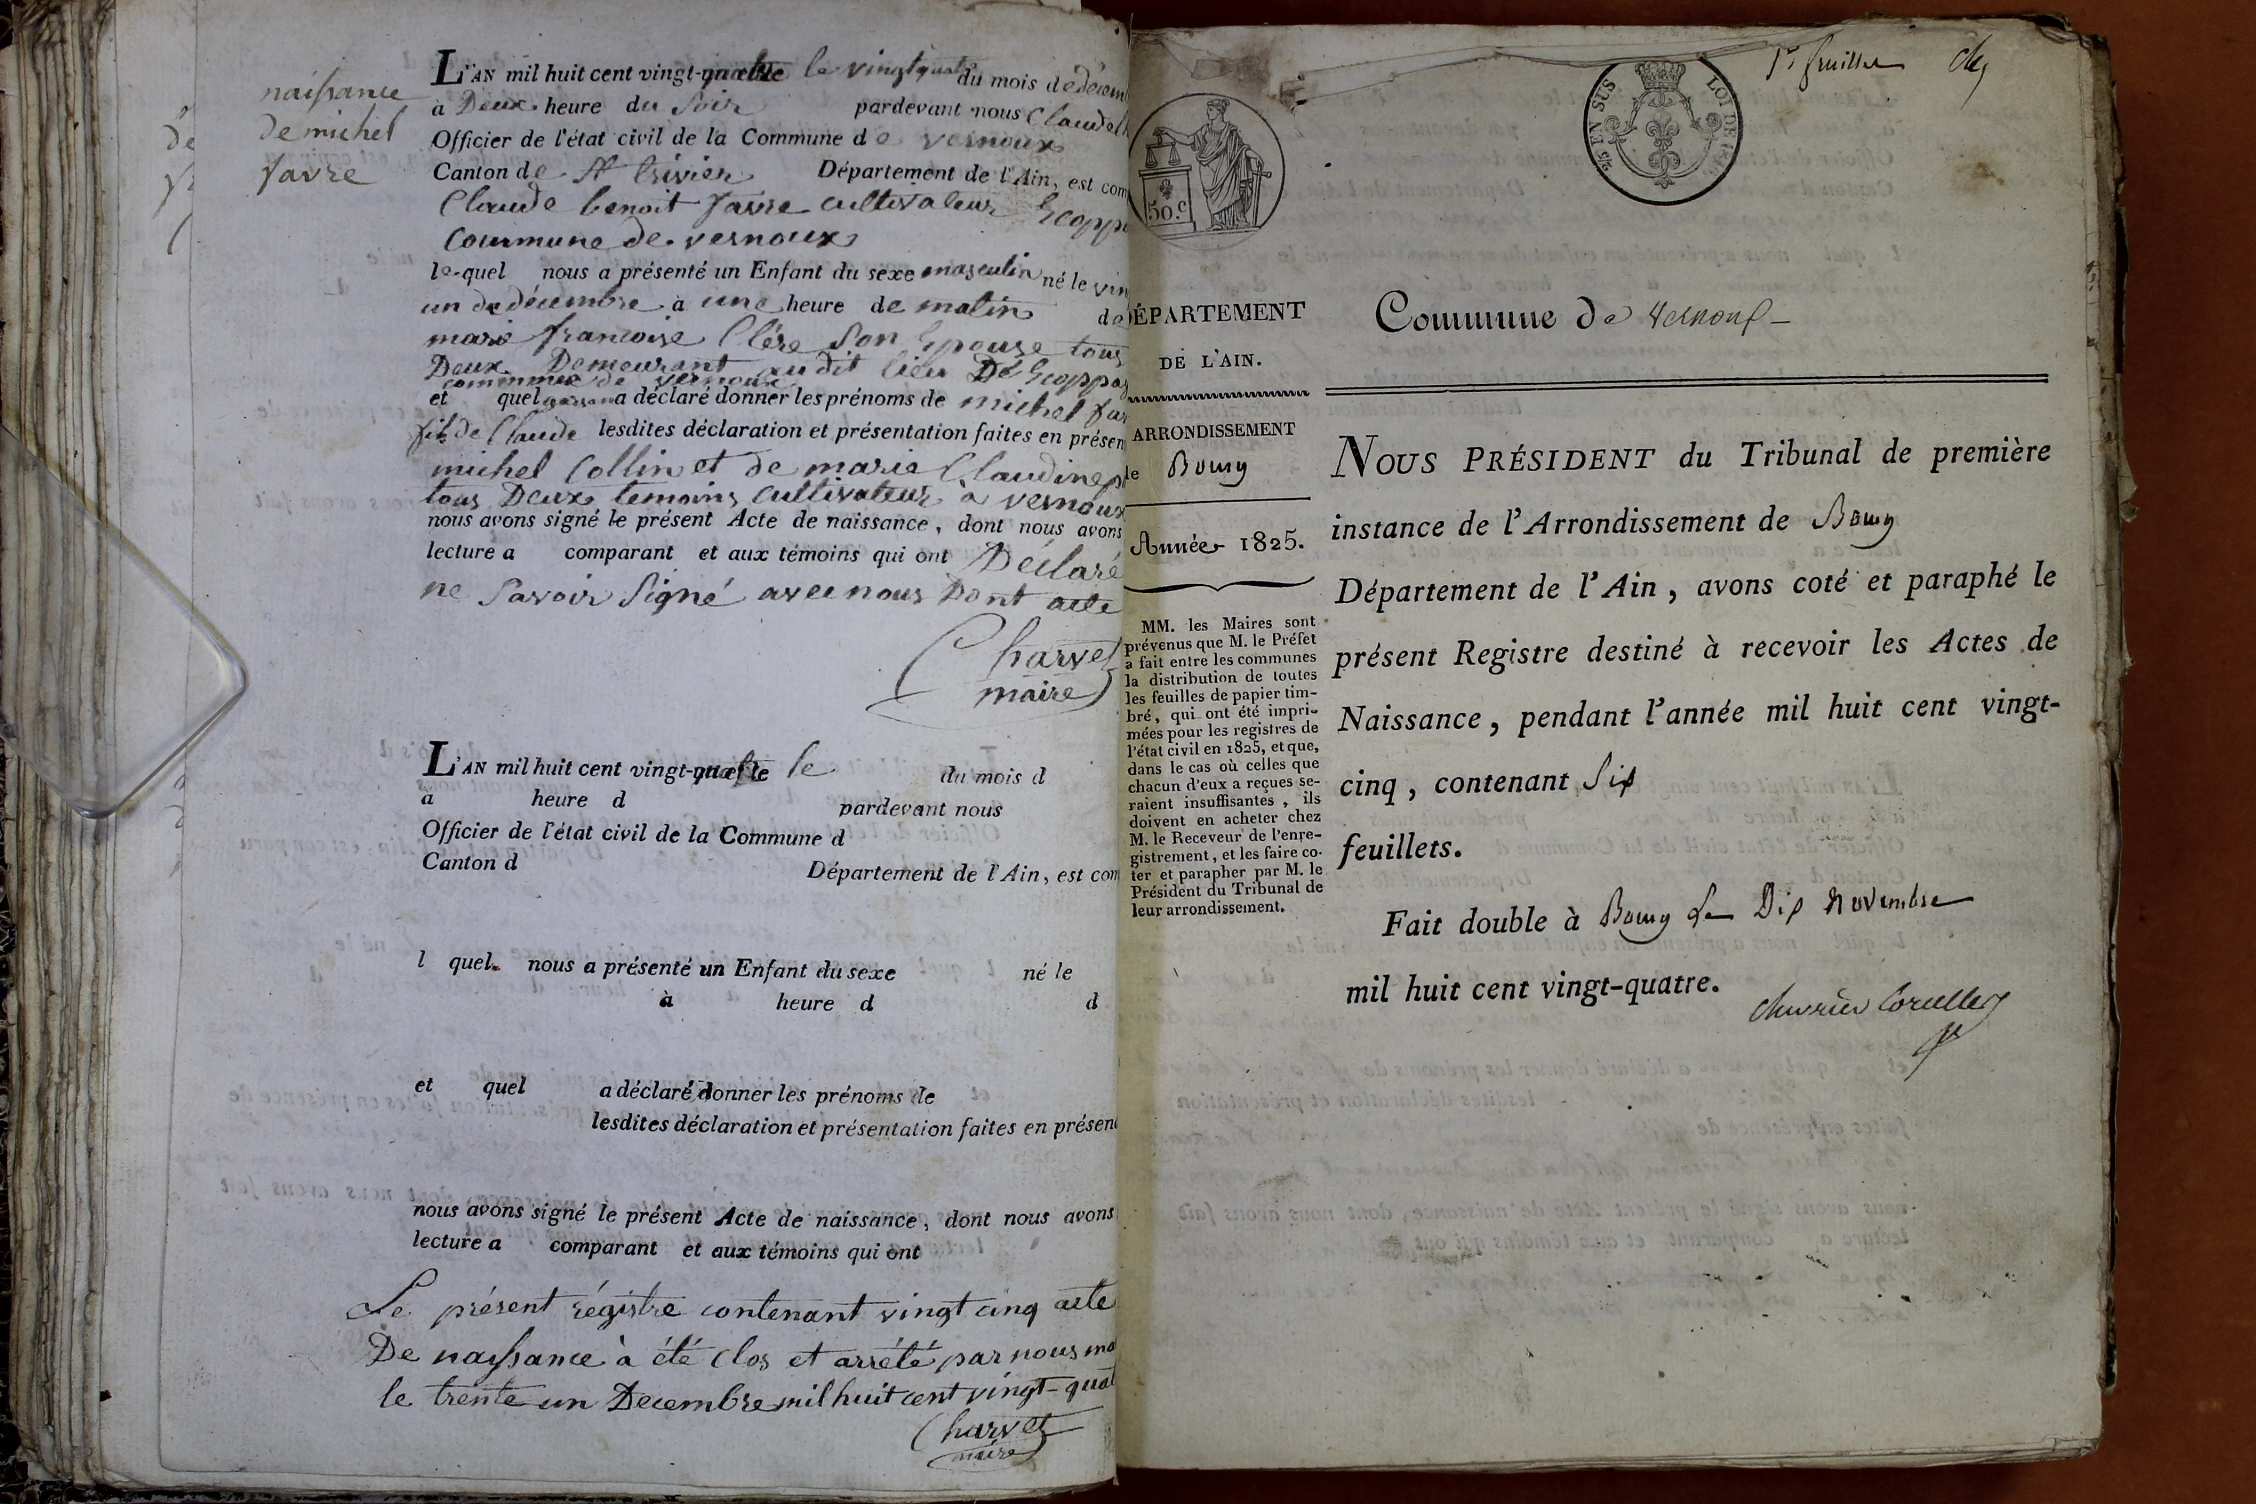 naissance
de michel
favre
L'AN mil huit cent vingt-quatre le vingt quatre du mois de décem
a Deux heure du soir pardevant nous Claude
Officier de l'état civil de la Commune de vernoux
Canton de St trivier Département de l'Ain, est com
Claude benoit favre cultivateur
Commune de vernoux
le quel nous a présenté un Enfant du sexe masculin né le vin
un de décembre à une heure de matin de
marie francoise Clére son Epouse tous
Deux Demeurant audit lieu De
commune de vernoux
et quel a déclaré donner les prénoms de michel fav
fils de Claude lesdites déclaration et présentation faites en présen
michel Collin et de marie Claudine
tous Deux temoins cultivateur à vernoux
nous avons signé le présent Acte de naissance, dont nous avons
lecture a comparant et aux témoins qui ont Déclaré
ne savoir signé avec nous Dont acte
Charvet
maire
L'AN mil huit cent vingt-quatre le du mois d
a heure d pardevant nous
Officier de l'état civil de la Commune d
Canton d Département de l'Ain, est com
l quel nous a présenté un Enfant du sexe né le
à heure d d
et quel a déclaré donner les prénoms de
lesdites déclaration et présentation faites en présenc
nous avons signé le présent Acte de naissance, dont nous avons
lecture a comparant et aux témoins qui ont
Le présent régistre contenant vingt cinq acte
De naissance à été clos et arrété par nous ma
le trente un Decembre mil huit cent vingt-quat
Charvet
maire
1er feuillet
EN SUS
LOI DE 1816
50.c
DÉPARTEMENT
DE L'AIN.
ARRONDISSEMENT
de Bourg
Année 1825.
MM. les Maires sont
prévenus que M. le Préfet
a fait entre les communes
la distribution de toutes
les feuilles de papier tim-
bré, qui ont été impri-
mées pour les registres de
l'état civil en 1825, et que,
dans le cas où celles que
chacun d'eux a reçues se-
raient insuffisantes, ils
doivent en acheter chez
M. le Receveur de l'enre-
gistrement, et les faire co-
ter et parapher par M. le
Président du Tribunal de
leur arrondissement.
Commune de Vernoux
NOUS PRÉSIDENT du Tribunal de première
instance de l'Arrondissement de Bourg
Département de l'Ain, avons coté et paraphé le
présent Registre destiné à recevoir les Actes de
Naissance, pendant l'année mil huit cent vingt-
cinq, contenant Six
feuillets.
Fait double à Bourg Le Dix Novembre
mil huit cent vingt-quatre.